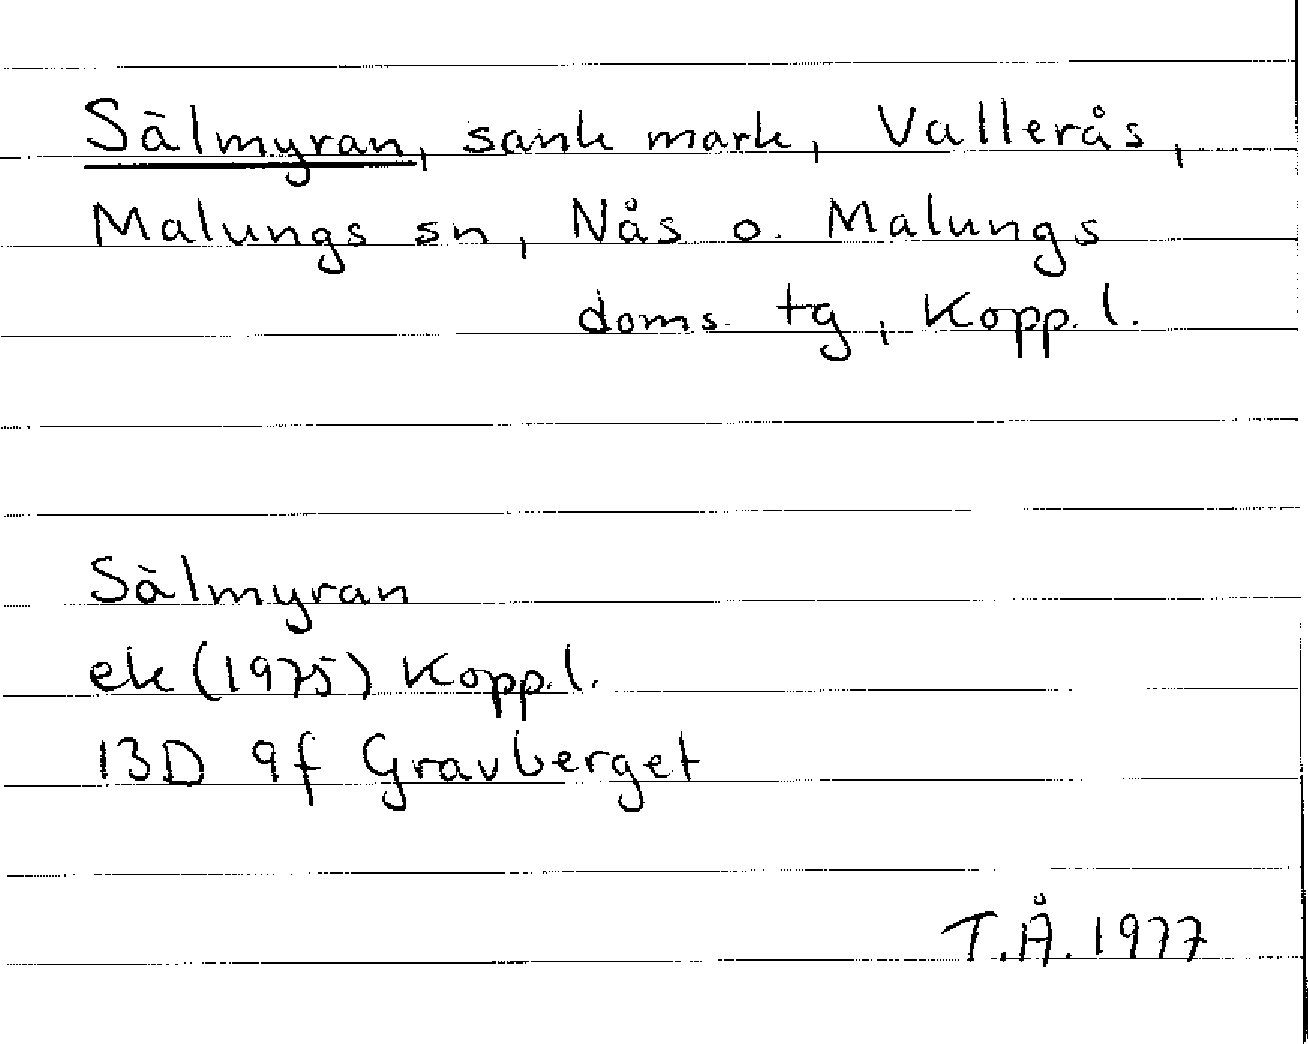 Sälmyran, sank mark, Vallerås,
Malungs sn, Nås o. Malungs
doms. tg, Kopp. l.
Sälmyran
ek (1975) Kopp.l.
13D 9f Gravberget
T.Å. 1977